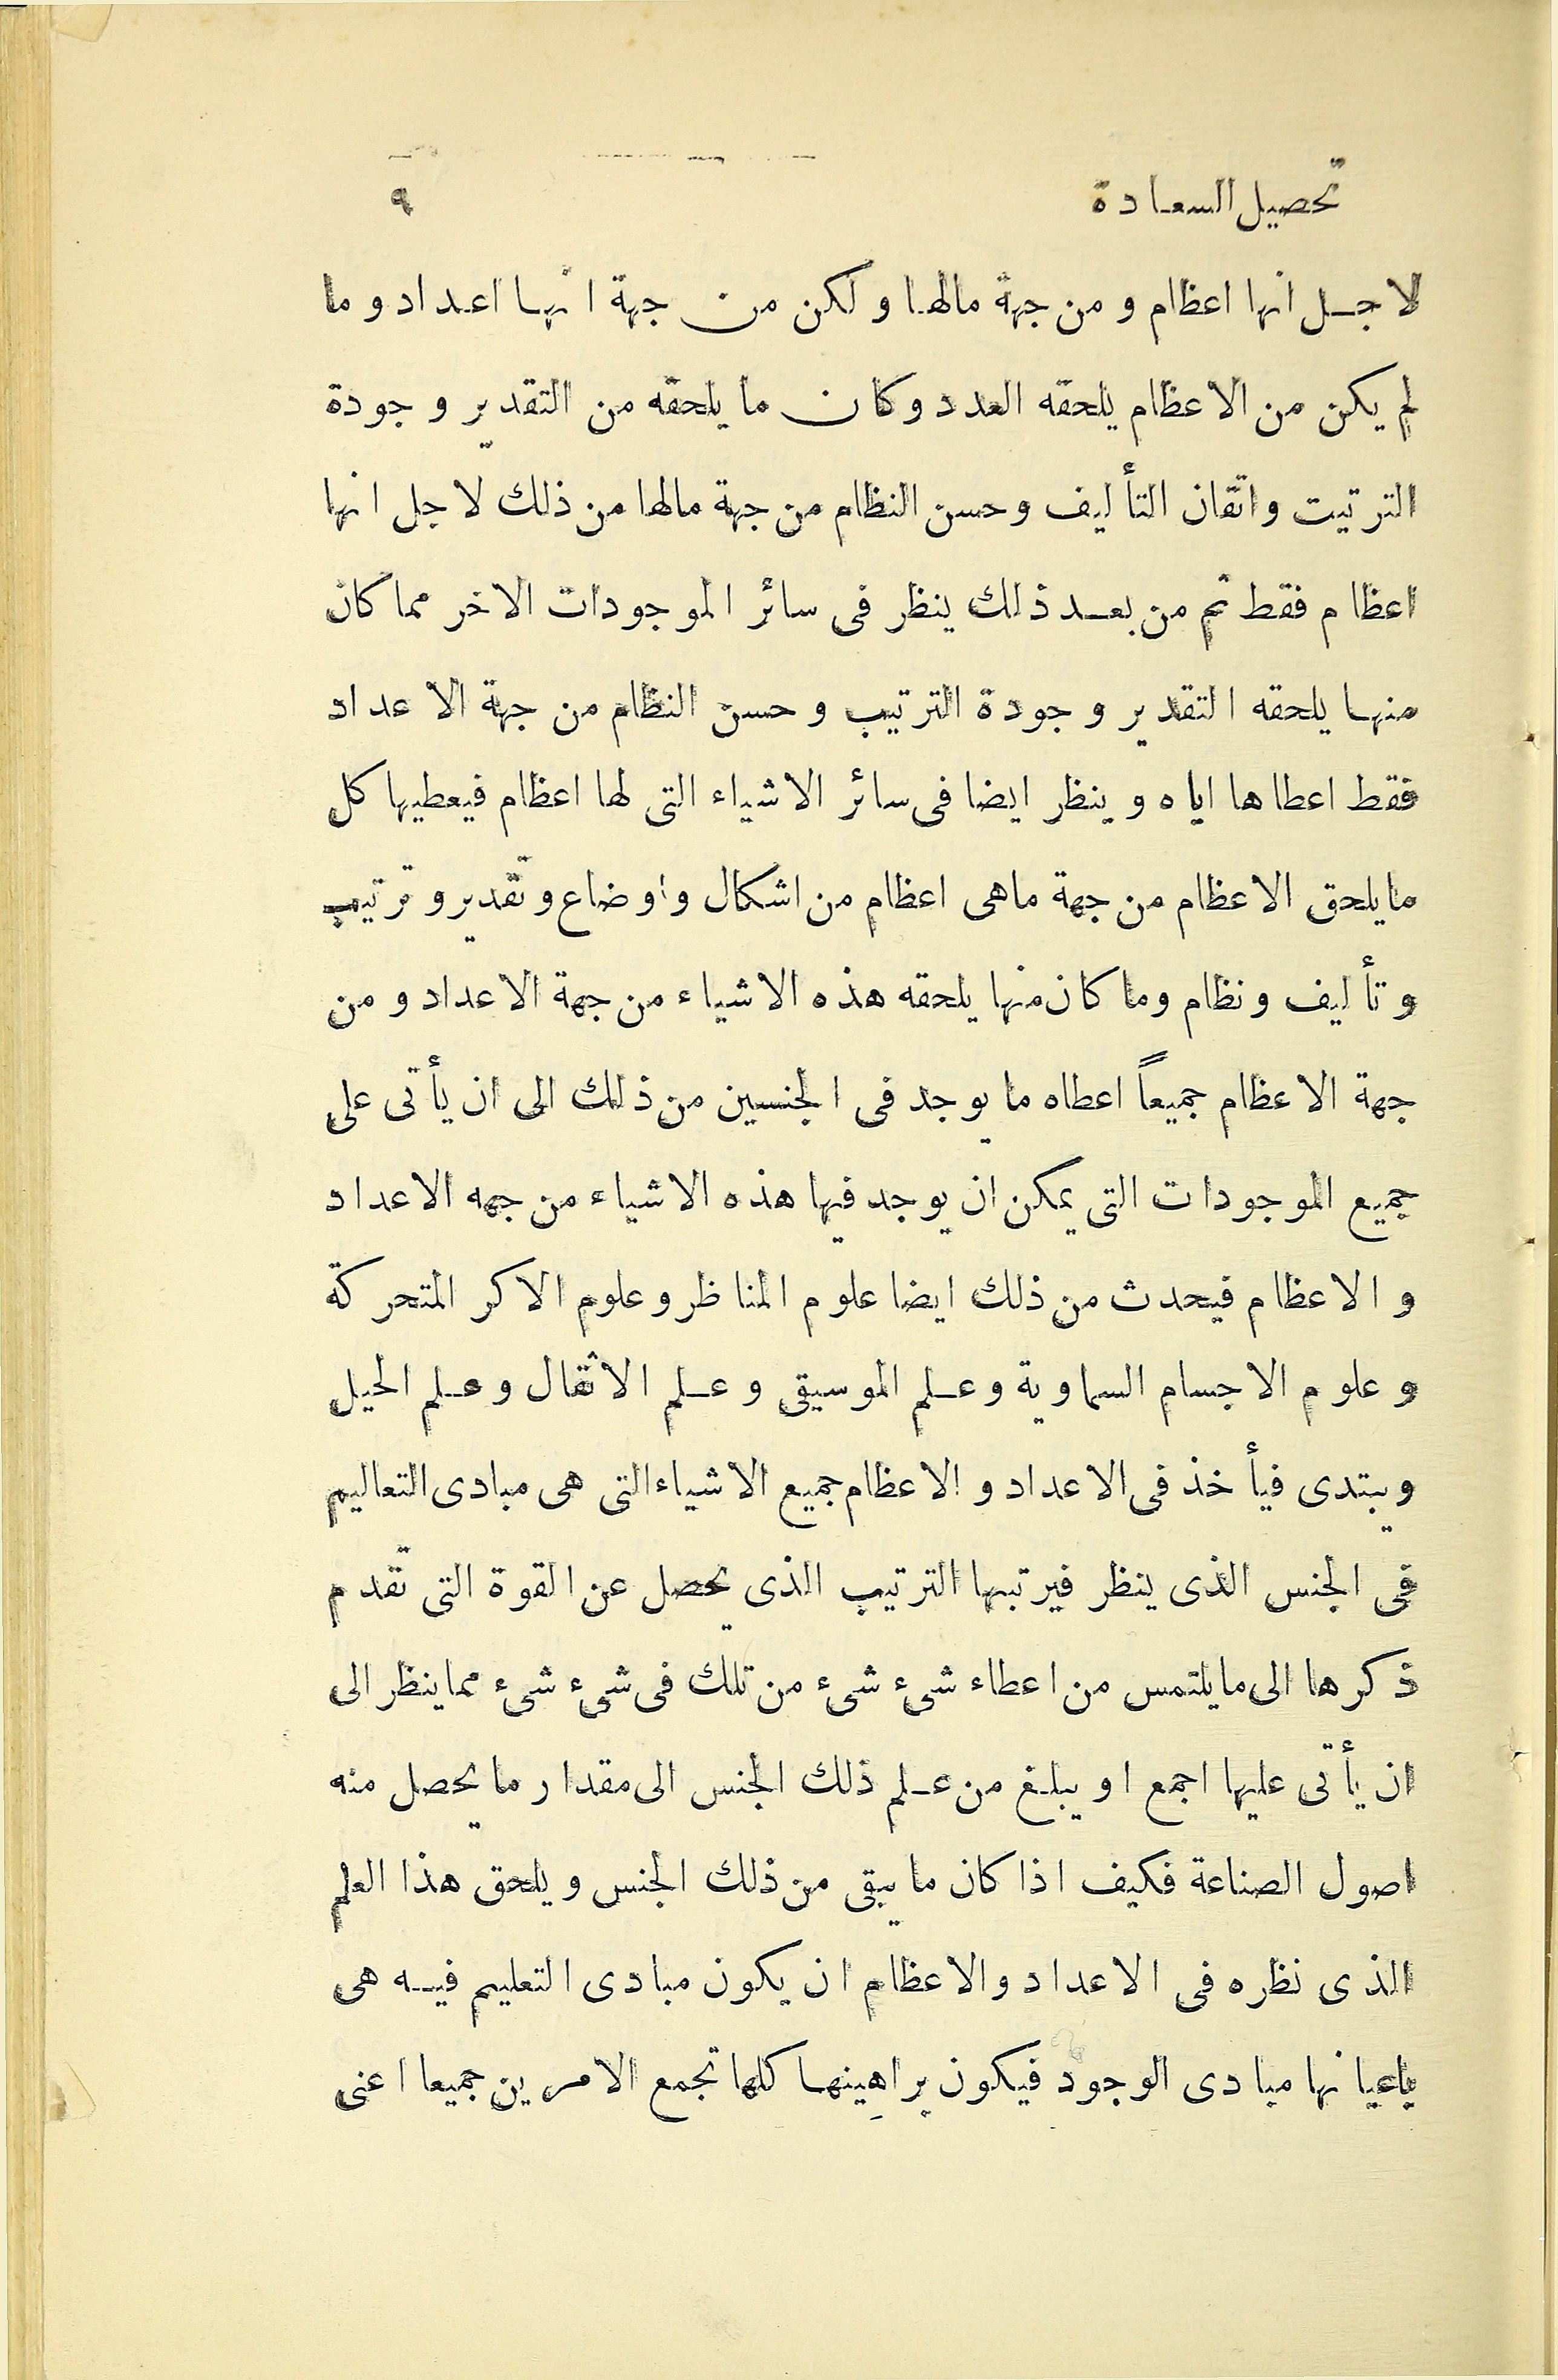 تحصيل السعادة ٩
لاجل انها اعظام ومن جهة مالها ولكن من جهة انها اعداد وما
لم يكن من الاعظام يلحقه العدد وكان ما يلحقه من التقدير وجودة
الترتيت واتقان التأليف وحسن النظام من جهة مالها من ذلك لاجل انها
اعظام فقط ثم من بعد ذلك ينظر فى سائر الموجودات الاخر مما كان
منها يلحقه التقدير وجودة الترتيب وحسن النظام من جهة الاعداد
فقط اعطاها اياه وينظر ايضا فى سائر الاشياء التى لها اعظام فيعطيها كل
ما يلحق الاعظام من جهة ماهى اعظام من اشكال واوضاع وتقدير وترتيب
وتأليف ونظام وما كان منها يلحقه هذه الاشياء من جهة الاعداد ومن
جهة الاعظام جميعاً اعطاه ما يوجد فى الجنسين من ذلك الى ان يأتى على
جميع الموجودات التى يمكن ان يوجد فيها هذه الاشياء من جهه الاعداد
والاعظام فيحدث من ذلك ايضا علوم المناظر وعلوم الاكر المتحركة
وعلوم الاجسام السماوية وعلم الموسيقى وعلم الاثقال وعلم الحيل
ويبتدى فيأخذ فى الاعداد والاعظام جميع الاشياء التى هى مبادى التعاليم
فى الجنس الذى ينظر فيرتبها الترتيب الذى يحصل عن القوة التى تقدم
ذكرها الى ما يلتمس من اعطاء شىء شىء من تلك فى شىء شىء مما ينظر الى
ان يأتى عليها اجمع او يبلغ من علم ذلك الجنس الى مقدار ما يحصل منه
اصول الصناعة فكيف اذا كان ما يبقى من ذلك الجنس ويلحق هذا العلم
الذى نظره فى الاعداد والاعظام ان يكون مبادى التعليم فيه هى
باعيانها مبادى الوجود فيكون براهينها كلها تجمع الامرين جميعا اعنى